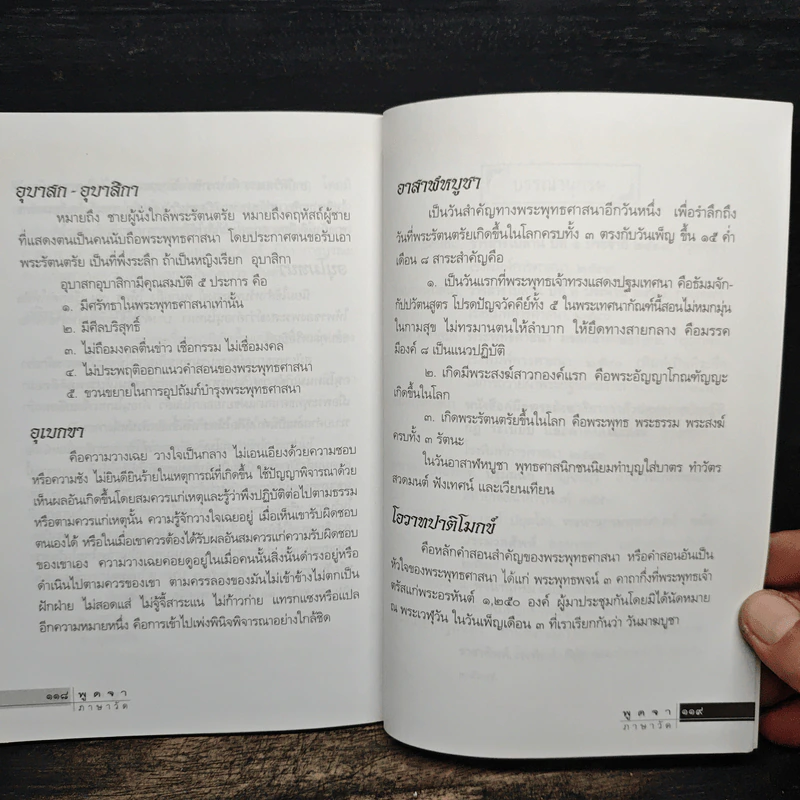 อุบาสก - อุบาสิกา
หมายถึง ชายผู้นั่งใกล้พระรัตนตรัย หมายถึงคฤหัสถ์ผู้ชาย
ที่แสดงตนเป็นคนนับถือพระพุทธศาสนา โดยประกาศตนขอรับเอา
พระรัตนตรัย เป็นที่พึ่งระลึก ถ้าเป็นหญิงเรียก อุบาสิกา
อุบาสกอุบาสิกามีคุณสมบัติ ๕ ประการ คือ
๑. มีศรัทธาในพระพุทธศาสนาเท่านั้น
๒. มีศีลบริสุทธิ์
๓. ไม่ถือมงคลตื่นข่าว เชื่อกรรม ไม่เชื่อมงคล
๔. ไม่ประพฤติออกแนวคำสอนของพระพุทธศาสนา
๕. ขวนขวายในการอุปถัมภ์บำรุงพระพุทธศาสนา
อุเบกขา
คือความวางเฉย วางใจเป็นกลาง ไม่เอนเอียงด้วยความชอบ
หรือความชัง ไม่ยินดียินร้ายในเหตุการณ์ที่เกิดขึ้น ใช้ปัญญาพิจารณาด้วย
เห็นผลอันเกิดขึ้นโดยสมควรแก่เหตุและรู้ว่าพึงปฏิบัติต่อไปตามธรรม
หรือตามควรแก่เหตุนั้น ความรู้จักวางใจเฉยอยู่ เมื่อเห็นเขารับผิดชอบ
ตนเองได้ หรือในเมื่อเขาควรต้องได้รับผลอันสมควรแก่ความรับผิดชอบ
ของเขาเอง ความวางเฉยคอยดูอยู่ในเมื่อคนนั้นสิ่งนั้นดำรงอยู่หรือ
ดำเนินไปตามควรของเขา ตามครรลองของมันไม่เข้าข้างไม่ตกเป็น
ฝักฝ่าย ไม่สอดแส่ ไม่จู้จี้สาระแน ไม่ก้าวก่าย แทรกแซงหรือแปล
อีกความหมายหนึ่ง คือการเข้าไปเพ่งพินิจพิจารณาอย่างใกล้ชิด
๑๑๘ พูดจา
ภาษาวัด
อาสาฬหบูชา
เป็นวันสำคัญทางพระพุทธศาสนาอีกวันหนึ่ง เพื่อรำลึกถึง
วันที่พระรัตนตรัยเกิดขึ้นในโลกครบทั้ง ๓ ตรงกับวันเพ็ญ ขึ้น ๑๕ ค่ำ
เดือน ๘ สาระสำคัญคือ
๑. เป็นวันแรกที่พระพุทธเจ้าทรงแสดงปฐมเทศนา คือธัมมจัก-
กัปปวัตนสูตร โปรดปัญจวัคคีย์ทั้ง ๕ ในพระเทศนากัณฑ์นี้สอนไม่หมกมุ่น
ในกามสุข ไม่ทรมานตนให้ลำบาก ให้ยึดทางสายกลาง คือมรรค
มีองค์ ๘ เป็นแนวปฏิบัติ
๒. เกิดมีพระสงฆ์สาวกองค์แรก คือพระอัญญาโกณฑัญญะ
เกิดขึ้นในโลก
๓. เกิดพระรัตนตรัยขึ้นในโลก คือพระพุทธ พระธรรม พระสงฆ์
ครบทั้ง ๓ รัตนะ
ในวันอาสาฬหบูชา พุทธศาสนิกชนนิยมทำบุญใส่บาตร ทำวัตร
สวดมนต์ ฟังเทศน์ และเวียนเทียน
โอวาทปาติโมกข์
คือหลักคำสอนสำคัญของพระพุทธศาสนา หรือคำสอนอันเป็น
หัวใจของพระพุทธศาสนา ได้แก่ พระพุทธพจน์ ๓ คาถากึ่งที่พระพุทธเจ้า
ตรัสแก่พระอรหันต์ ๑,๒๕๐ องค์ ผู้มาประชุมกันโดยมิได้นัดหมาย
ณ พระเวฬุวัน ในวันเพ็ญเดือน ๓ ที่เราเรียกกันว่า วันมาฆบูชา
พูดจา ๑๑๙
ภาษาวัด